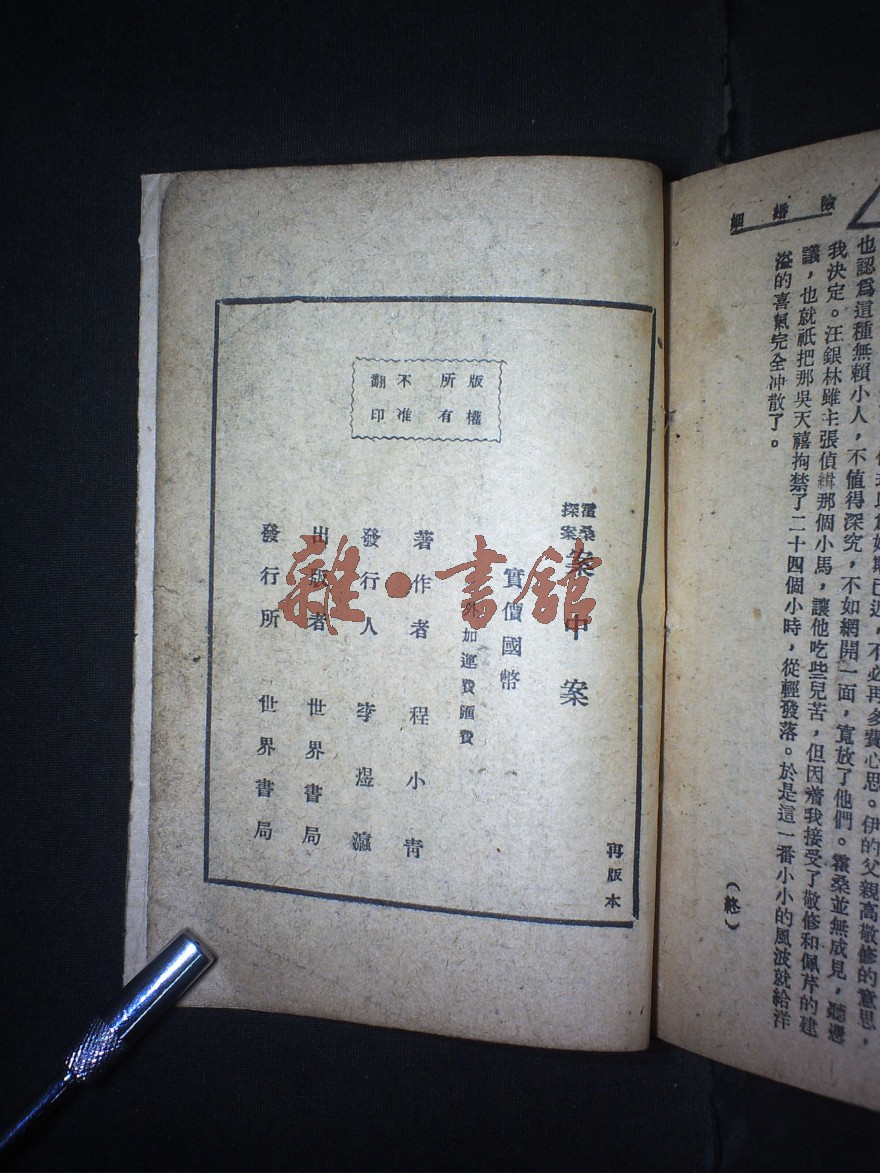 險婚姻
也認爲這種無賴小人，不值得深究，不如網開一面，寬放了他們。霍桑並無成見，聽憑
我決定。汪銀林雖主張偵緝那個小馬，讓他吃些兒苦，但因着我接受了敬修和佩芹的建
議，也就祇把那吳天禧拘禁了二十四個小時，從輕發落。於是這一番小小的風波就給洋
溢的喜氣完全冲散了。
（終）
再版本
霍桑探案
案中案
實價國幣
外加運費匯費
著作者 程小青
發行人 李煜瀛
出版者 世界書局
發行所 世界書局
版權所有
不准翻印
雜·書館